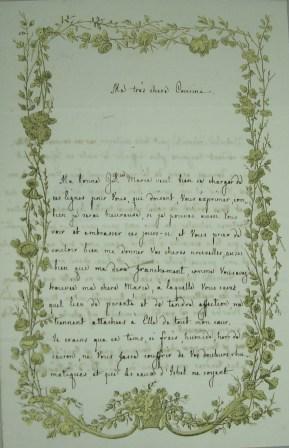 Ma très chère Cousine.
Ma bonne Marie veut bien se charger de
ces lignes pour Vous, qui doivent, Vous exprimer com-
bien je serai heureuse, si je pouvais aussi Vous
voir et embrasser ces jours-ci, et Vous prier de
vouloir bien me donner Vos chères nouvelles, aussi
bien que me dire franchement comme Vous avez
trouvée ma chère Marie, à laquelle Vous savez
quel lien de parenté et de tendre affection me
tiennent attachée à Elle de tout mon cœur.
Je crains que ce tems, si frais, humide, hors de
saison, ne Vous fasse souffrir de Vos douleurs rhu-
matiques et que